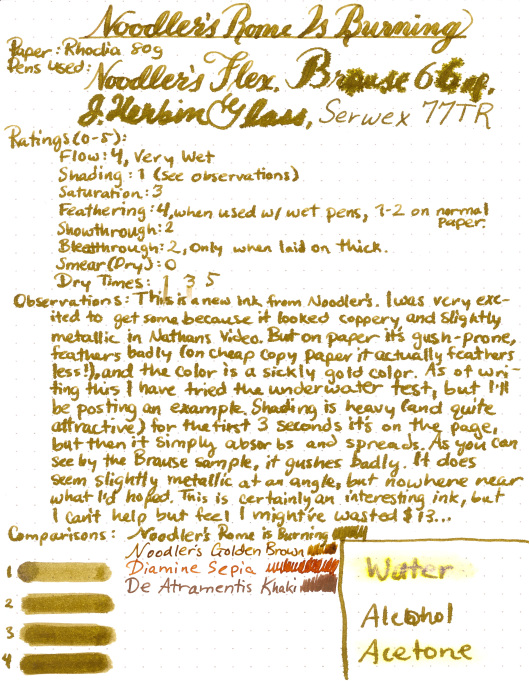 Noodler's Rome Is Burning
Paper: Rhodia 80g
Pens Used:
Noodler's Flex, Brause 66EF,
J. Herbin Glass, Serwex 77TR
Ratings (0-5):
Flow: 4, Very Wet
Shading: 1 (see observations)
Saturation: 3
Feathering: 4, when used w/ wet pens, 1-2 on normal paper.
Showthrough: 2
Bleedthrough: 2, only when laid on thick.
Smear (Dry): 0
Dry Times: 1 3 5
Observations: This is a new ink from Noodler's. I was very exc-
ited to get some because it looked coppery and slightly
metallic in Nathans Video. But on paper it's gush-prone,
feathers badly (on cheap copy paper it actually feathers
less!), and the color is a sickly gold color. As of wri-
ting this I have tried the underwater test, but I'll
be posting an example. Shading is heavy (and quite
attractive) for the first 3 seconds it's on the page,
but then it simply absorbs and spreads. As you can
see by the Brause sample, it gushes badly. It does
seem slightly metallic at an angle, but nowhere near
what I'd hoped. This is certainly an interesting ink, but
I can't help but feel I might've wasted $13...
Comparisons: Noodler's Rome is Burning
Noodler's Golden Brown
Diamine Sepia
De Atramentis Khaki
1
2
3
4
Water
Alcohol
Acetone